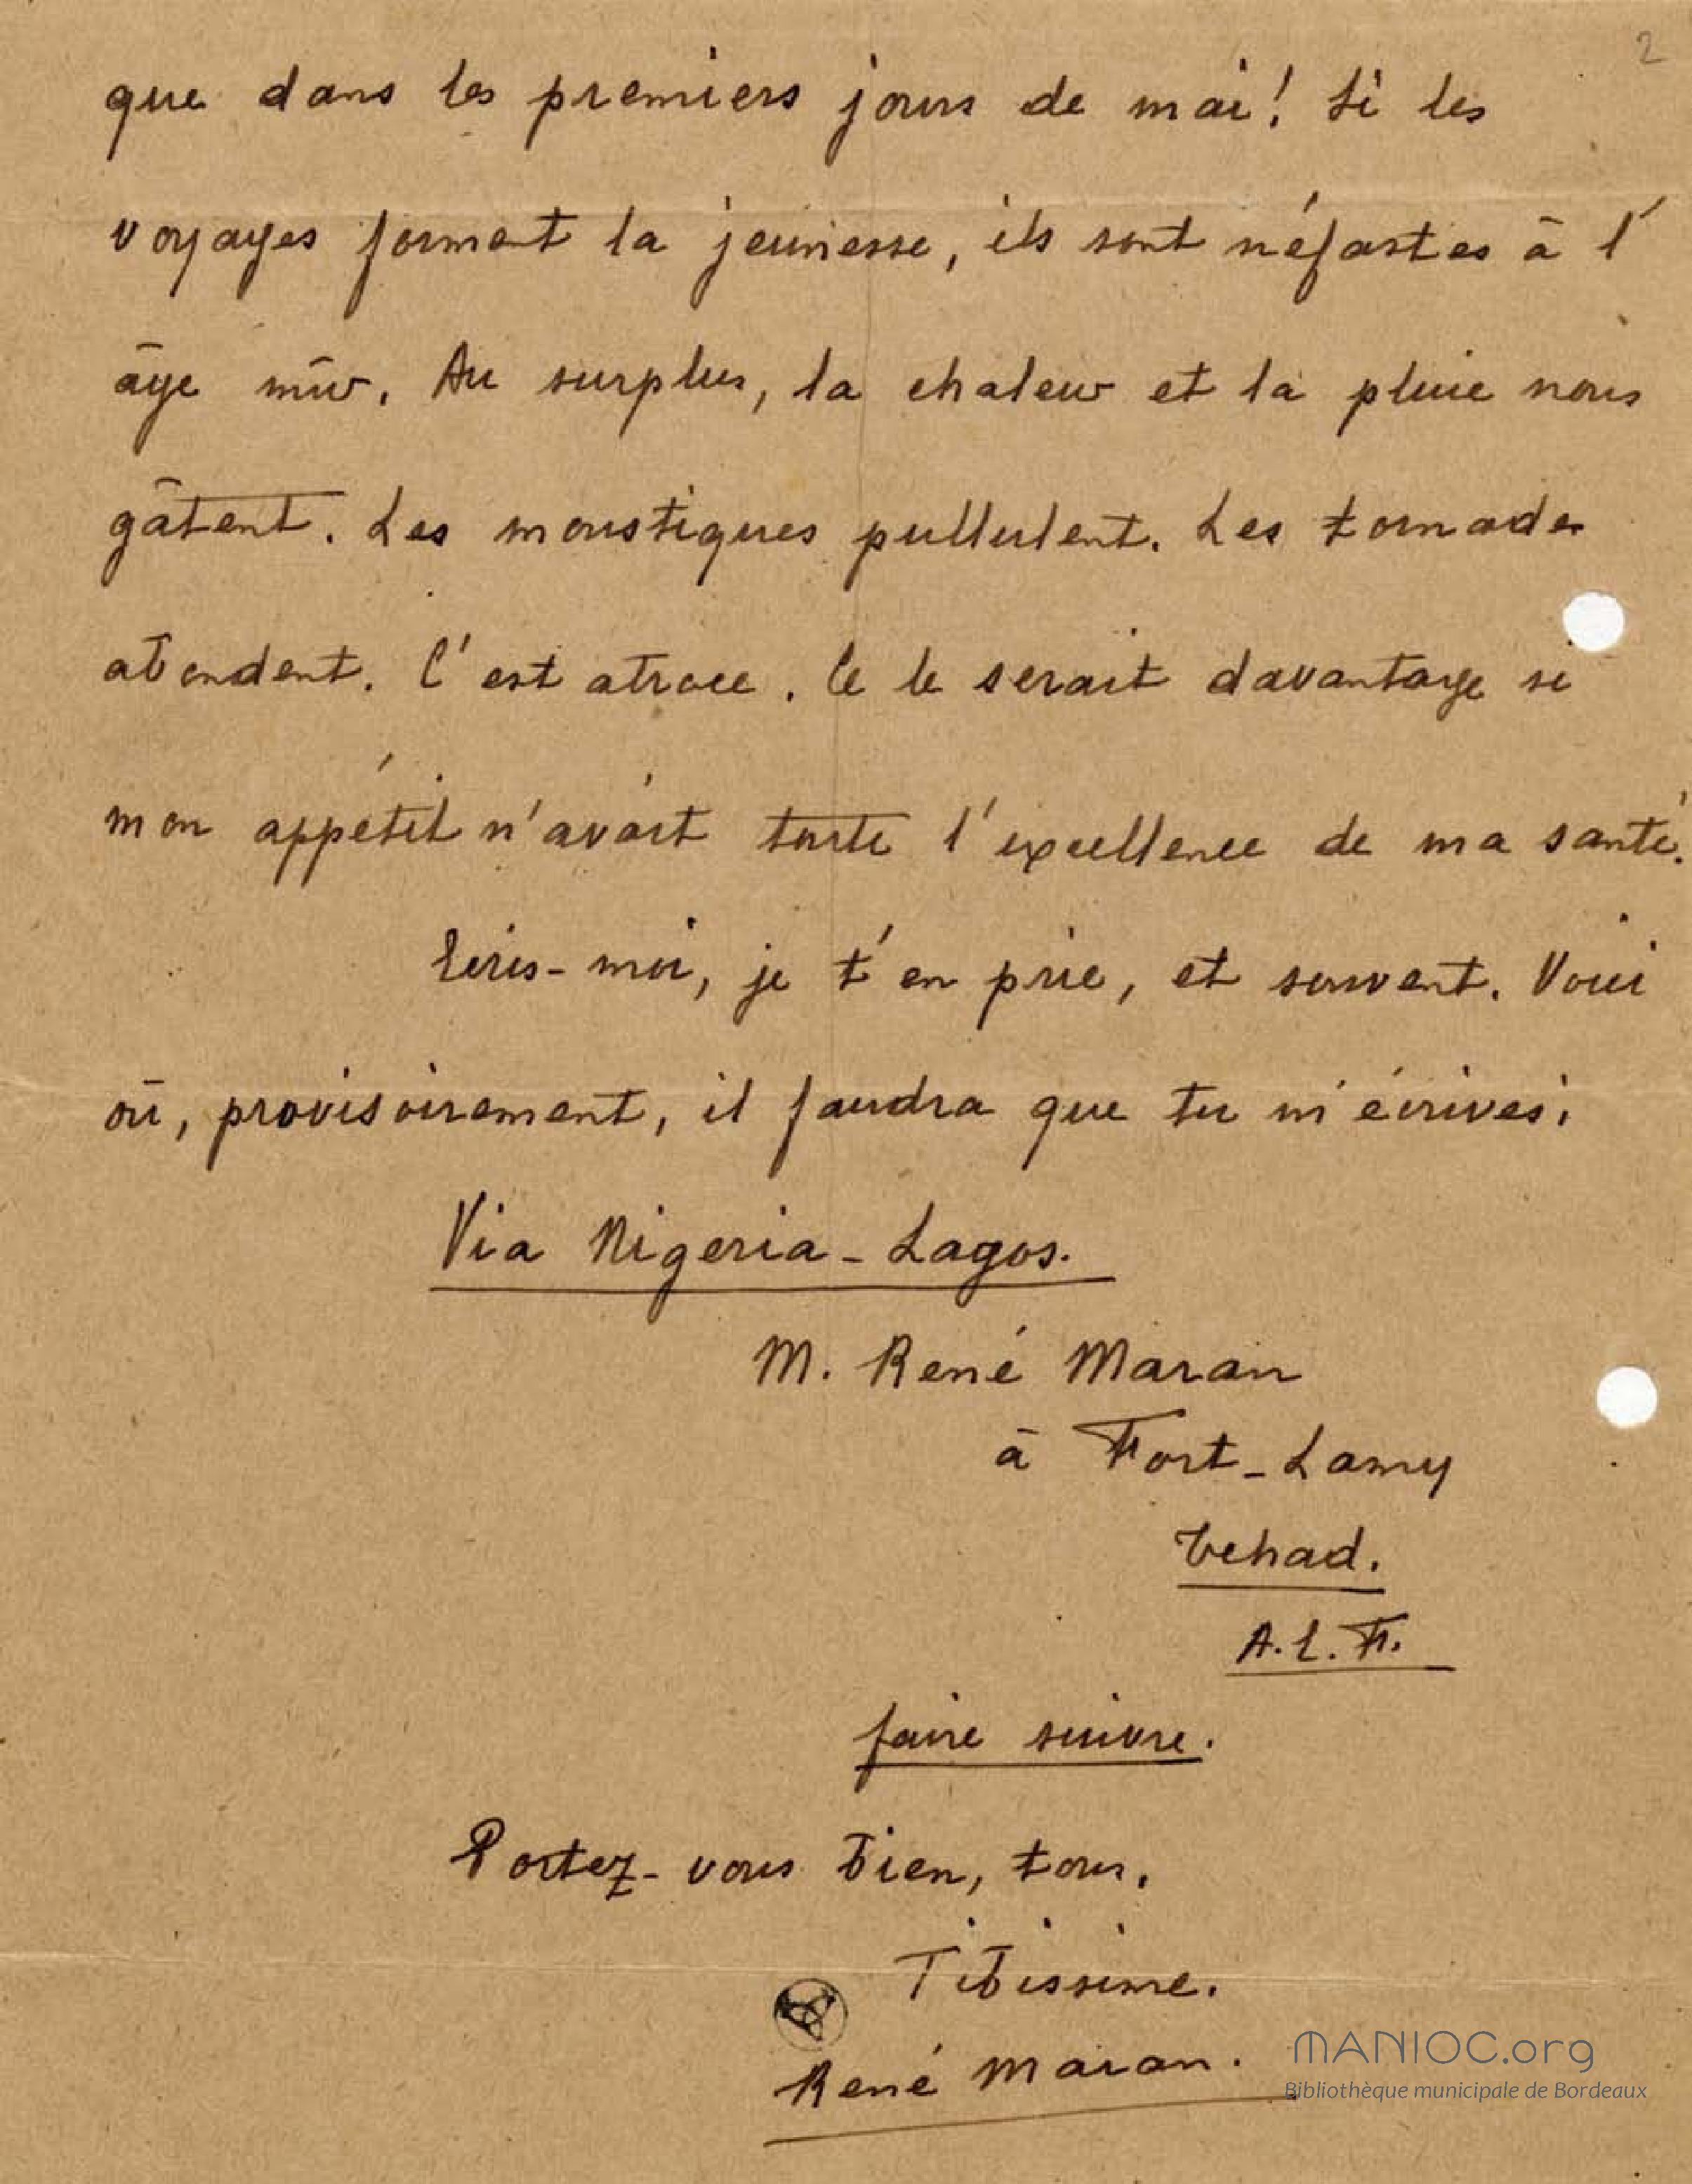 2
que dans les premiers jours de mai! Si les
voyages forment la jeunesse, ils sont néfastes à l'
âge mûr. Au surplus, la chaleur et la pluie nous
gâtent. Les moustiques pullulent. Les tornades
abondent. C'est atroce. Ce le serait davantage si
mon appétit n'avait toute l'excellence de ma santé.
Ecris-moi, je t'en prie, et souvent. Voici
où, provisoirement, il faudra que tu m'écrives:
Via Nigeria-Lagos.
M. René Maran
à Fort-Lamy
Tchad.
A.E.F.
faire suivre.
Portez-vous bien, tous.
Tibissime.
René Maran.
MANIOC.org
Bibliothèque municipale de Bordeaux